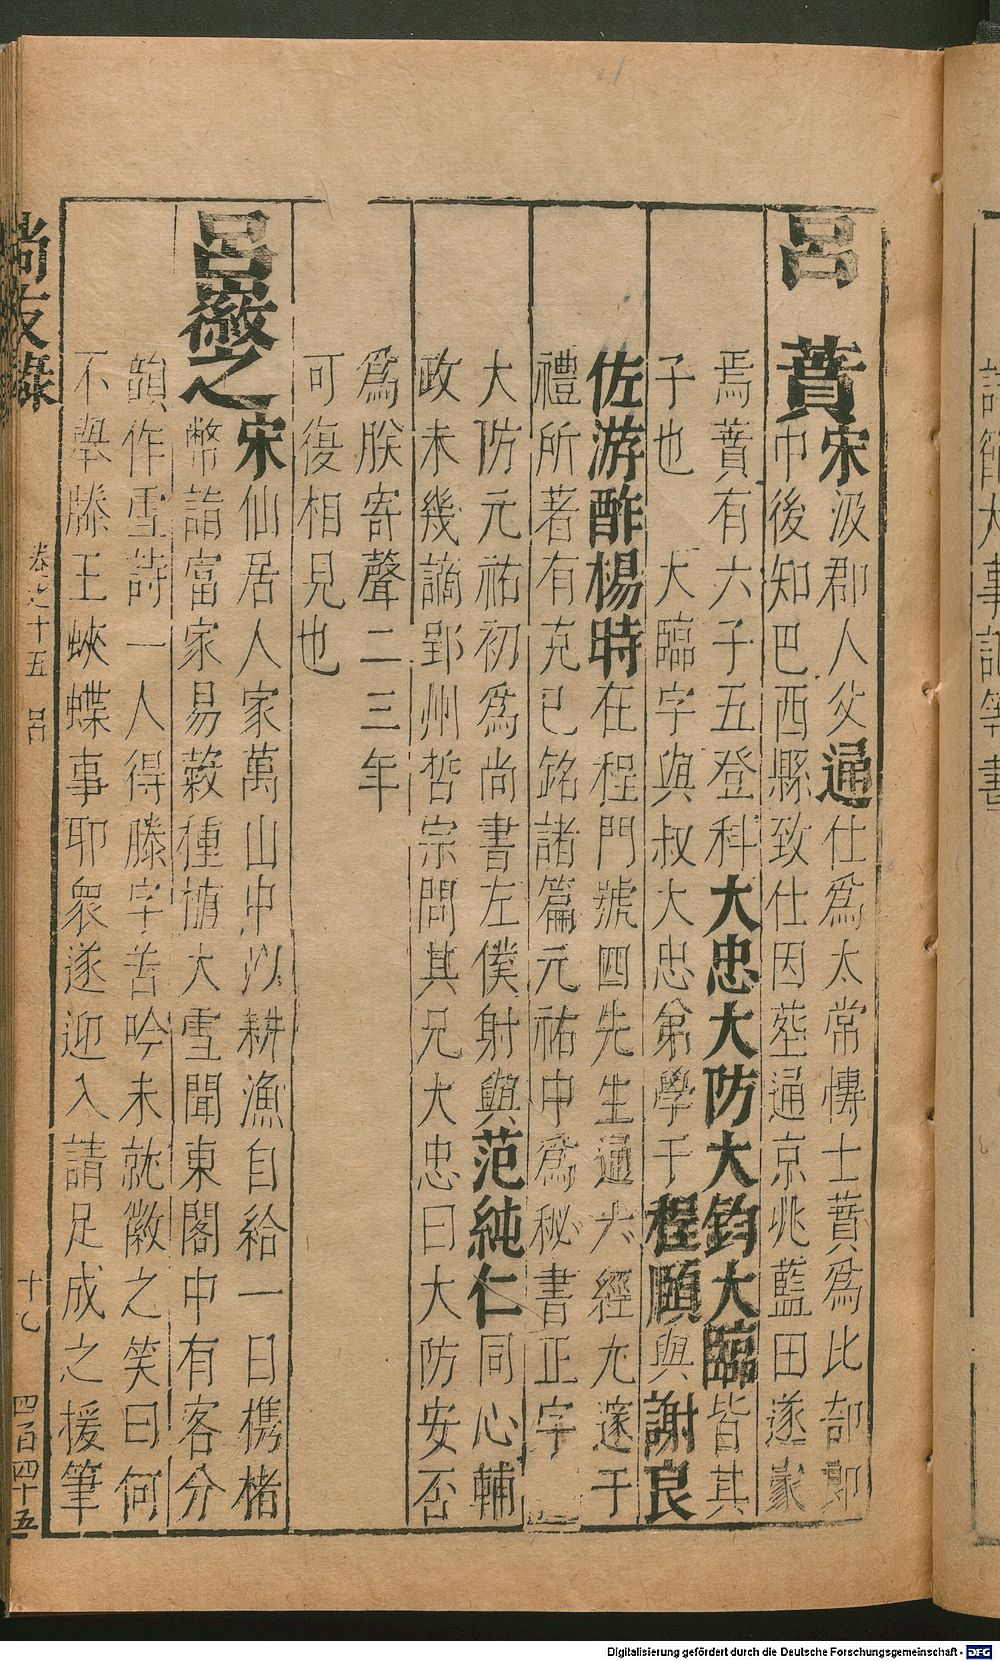 呂蕡宋汲郡人父通仕爲太常愽士蕡爲比部郎
中後知巴西縣致仕因塟通京兆藍田遂家
焉蕡有六子五登科大忠大防大鈞大臨皆其
子也 大臨字與叔大忠弟學于程頤與謝良
佐游酢楊時在程門號四先生通六經尤邃于
禮所著有克己銘諸篇元祐中爲秘書正字
大防元祐初爲尚書左僕射與范純仁同心輔
政未幾謫郢州哲宗問其兄大忠曰大防安否
爲朕寄聲二三年
可復相見也
呂徽之宋仙居人家萬山中以耕漁自給一日携楮
幣詣富家易穀種值大雪聞東閣中有客分
韻作雪詩一人得滕字苦吟未就徽之笑曰何
不舉滕王蛺蝶事耶衆遂迎入請足成之援筆
尚友錄 卷之十五 呂 十七 四百四十五
Digitalisierung gefördert durch die Deutsche Forschungsgemeinschaft - DFG